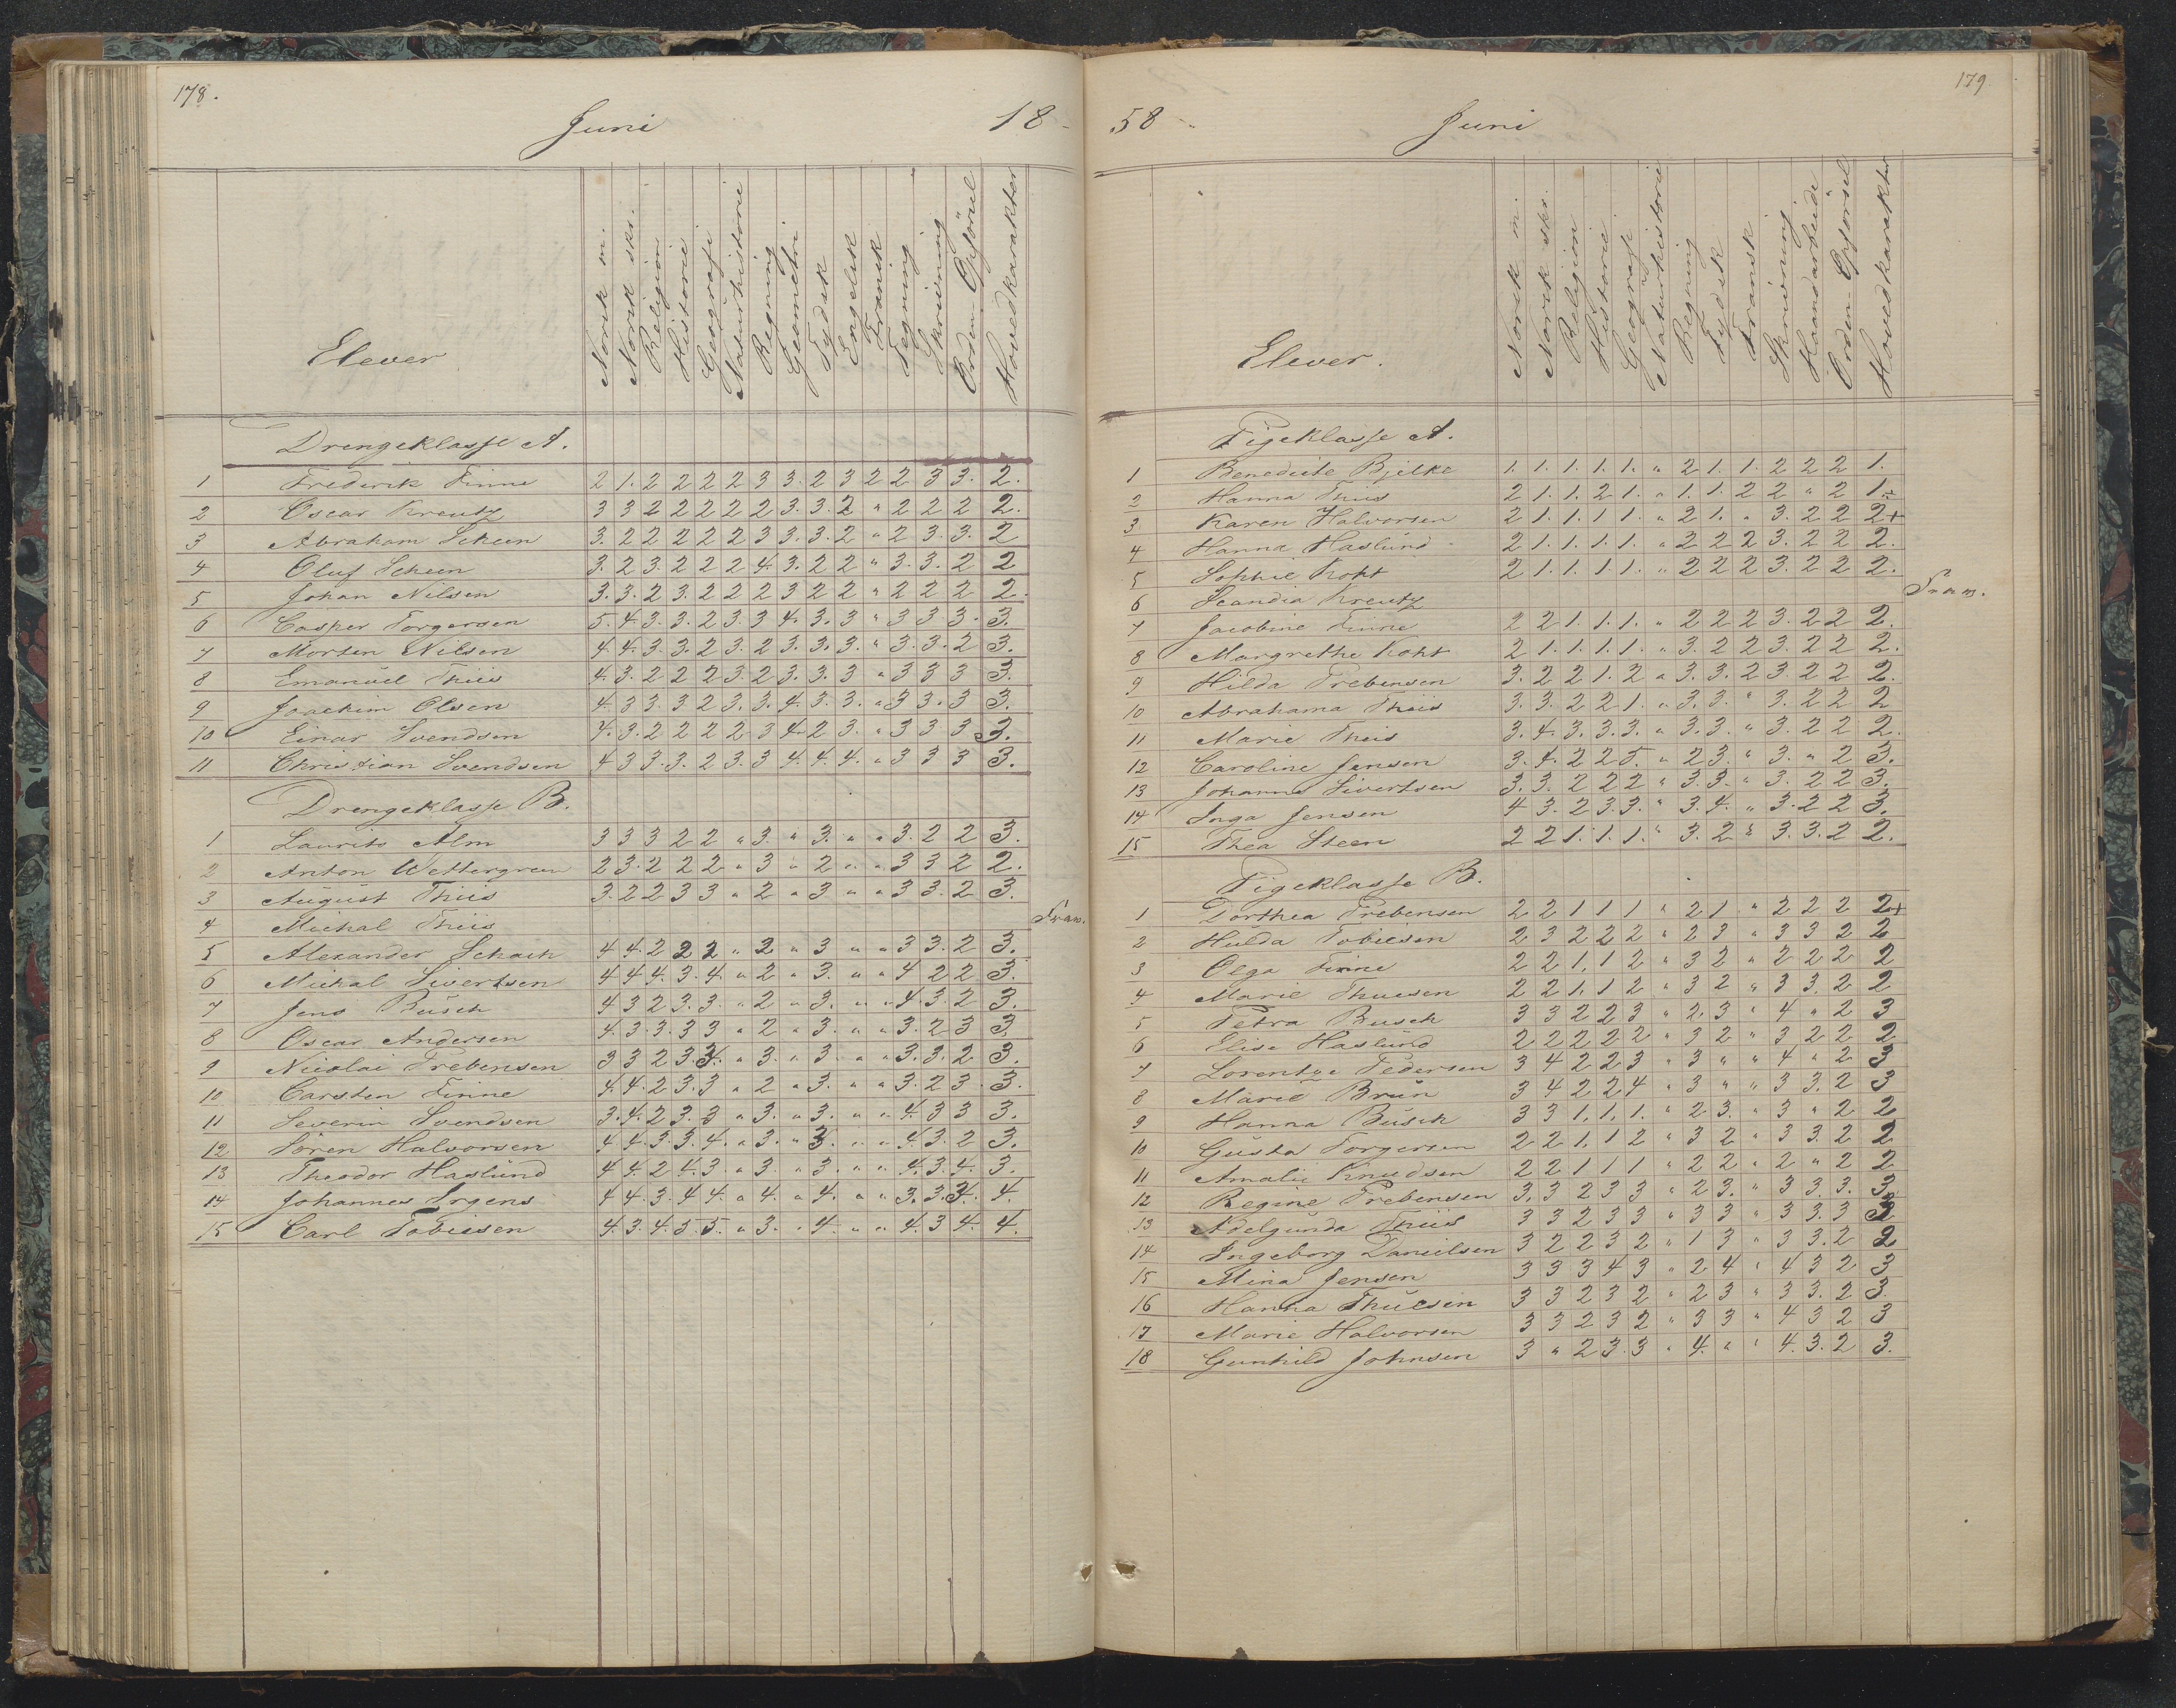 178.
Juni 18-
Elever Norsk m. Norsk skr. Religion Historie Geografi Naturhistorie Regning Geometri Tydsk Engelsk Fransk Tegning Skrivning Orden Opförsel Hovedkarakter
Drengeklasse A.
1 Frederik Finne 2 1. 2 2 2 2 3 3. 2 3 2 2 3 3. 2.
2 Oscar Kreutz 3 3 2 2 2 2 2 3. 3. 2 " 2 2 2 2.
3 Abraham Scheen 3. 2 2 2 2 2 3 3. 3. 2 " 2 3. 3. 2
4 Oluf Scheen 3. 2 3. 2 2 2 4. 3. 2 2 " 3. 3. 2 2
5 Johan Nilsen 3. 3. 2 3. 2 2 2 3 2 2 " 2 2 2 2.
6 Casper Torgersen 5. 4. 3. 3. 2 3. 3 4. 3. 3 " 3 3 3. 3.
7 Morten Nilsen 4. 4. 3. 3. 2 3. 2 3. 3. 3. " 3. 3. 2 3.
8 Emanuel Thiis 4. 3. 2 2 2 3. 2 3. 3. 3 " 3 3 3 3.
9 Joachim Olsen 4. 3 3 3 2 3. 3. 4. 3. 3. " 3 3. 3 3.
10 Einar Svendsen 4. 3. 2 2 2 2 3 4. 2 3. " 3 3 3 3.
11 Christian Svendsen 4 3 3. 3. 2 3. 3 4. 4. 4. " 3 3 3 3.
Drengeklasse B.
1 Laurits Alm 3 3 3 2 2 " 3. " 3. " " 3. 2 2 3.
2 Anton Wettergreen 2 3. 2 2 2 " 3 " 2 " " 3 3 2 2.
3 August Thiis 3. 2 2 3 3 " 2 " 3 " " 3 3. 2 3.
4 Michal Thiis Frav.
5 Alexander Schach 4 4. 2 2 2 " 2 " 3 " " 3 3. 2 3.
6 Michal Sivertsen 4 4 4. 3. 4. " 2 " 3. " " 4 2 2 3.
7 Jens Busch 4 3 2 3. 3. " 2 " 3. " " 4. 3. 2 3.
8 Oscar Andersen 4. 3. 3. 3 3 " 2 " 3. " " 3. 2 3 3
9 Nicolai Prebensen 3 3 2 3 3. " 3. " 3. " " 3. 3. 2 3.
10 Carsten Finne 4. 4. 2 3. 3 " 2 " 3. " " 3. 2 3 3.
11 Severin Svendsen 3. 4. 2 3. 3 " 3. " 3. " " 4. 3 3 3.
12 Sören Halvorsen 4 4. 3. 3. 4. " 3. " 3. " " 4. 3. 2 3.
13 Theodor Haslund 4 4. 2 4. 3 " 3. " 3. " " 4. 3. 4. 3.
14 Johannes Irgens 4 4. 3. 4 4. " 4. " 4. " " 3. 3. 4. 4.
15 Carl Tobiesen 4. 3. 4. 5 5. " 3. " 4. " " 4. 3 4. 4.
179
58 Juni
Elever. Norsk m. Norsk skr. Religion Historie Geografi Naturhistorie Regning Tydsk Fransk Skrivning Haandarbeide Orden Opförsel Hovedkarakter
Pigeklasse A.
1 Benedicte Bjelke 1. 1. 1. 1. 1. " 2 1. 1. 2 2 2 1.
2 Hanna Thiis 2 1. 1. 2 1. " 1. 1. 2 2 " 2 1÷
3 Karen Halvorsen 2 1. 1. 1 1. " 2 1. " 3. 2 2 2+
4 Hanna Haslund 2 1. 1. 1. 1. " 2 2 2 3. 2 2 2.
5 Sophie Koht 2 1. 1. 1 1. " 2 2 2 3. 2 2 2.
6 Scandia Kreutz Frav.
7 Jacobine Finne 2 2 1. 1. 1. " 2 2 2 3. 2 2 2.
8 Margrethe Koht 2 1. 1. 1. 1. " 3. 2 2 3. 2 2 2.
9 Hilda Prebensen 3. 2 2 1. 2 " 3. 3. 2 3. 2 2 2.
10 Abrahama Thiis 3. 3. 2 2 1. " 3. 3. " 3. 2 2 2
11 Marie Thiis 3. 4. 3. 3. 3. " 3. 3. " 3. 2 2 2.
12 Caroline Jensen 3. 4. 2 2 5. " 2 3. " 3. " 2 3.
13 Johanne Sivertsen 3. 3. 2 2 2 " 3. 3. " 3. 2 2 3.
14 Inga Jensen 4 3. 2 3. 3. " 3. 4. " 3. 2 2 3.
15 Thea Steen 2 2 1. 1. 1. " 3. 2 " 3. 3. 2 2.
Pigeklasse B.
1 Dorthea Prebensen 2 2 1 1 1 " 2 1. " 2 2 2 2+
2 Hulda Tobiesen 2 3 2 2 2 " 2 3 " 3 3 2 2
3 Olga Finne 2 2 1. 1 2 " 3 2 " 2 2 2 2
4 Marie Thuesen 2 2 1. 1 2 " 3 2 " 3 3. 2 2
5 Petra Busch 3 3 2 2 3 " 2. 3 " 4 " 2 3
6 Elise Haslund 2 2 2 2 2 " 3 2 " 3 2 2 2
7 Lorentze Pedersen 3 4 2 2 3 " 3 " " 4 " 2 3
8 Marie Brun 3 4 2 2 4 " 3 " " 3 3. 2 3
9 Hanna Busch 3 3 1. 1. 1. " 2 3. " 3 " 2 2
10 Gusta Torgersen 2 2 1. 1 2 " 3 2 " 3 3. 2 2
11 Amalie Knudsen 2 2 1 1 1 " 2 2 " 2 " 2 2
12 Regine Prebensen 3. 3 2 3 3 " 2 3. " 3 3. 3. 3
13 Adelgunda Thiis 3 3 2 3 3 " 3 3 " 3 3. 3 3
14 Ingeborg Danielsen 3 2 2 3 2 " 1 3 " 3 3. 2 2
15 Mina Jensen 3 3 3 4 3 " 2 4 " 4 3 2 3
16 Hanna Thuesen 3 3 2 3 2 " 2 3 " 3 3. 2 3.
17 Marie Halvorsen 3 3 2 3 2 " 3 3 " 4 3 2 3
18 Gunhild Johnsen 3 " 2 3. 3 " 4. " " 4. 3. 2 3.